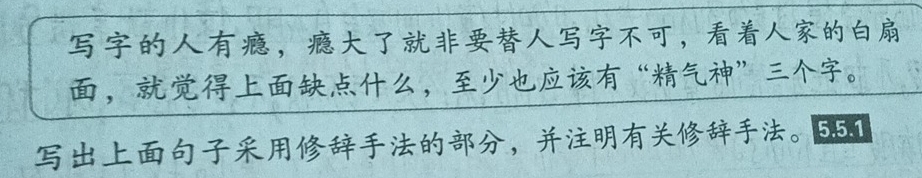 写字的人有瘾，瘾大了就非要替人写字不可，看着人家的白扇
面，就觉得上面缺点什么，至少也应该有“精气神”三个字。
写出上面句子采用修辞手法的部分，并注明有关修辞手法。5.5.1